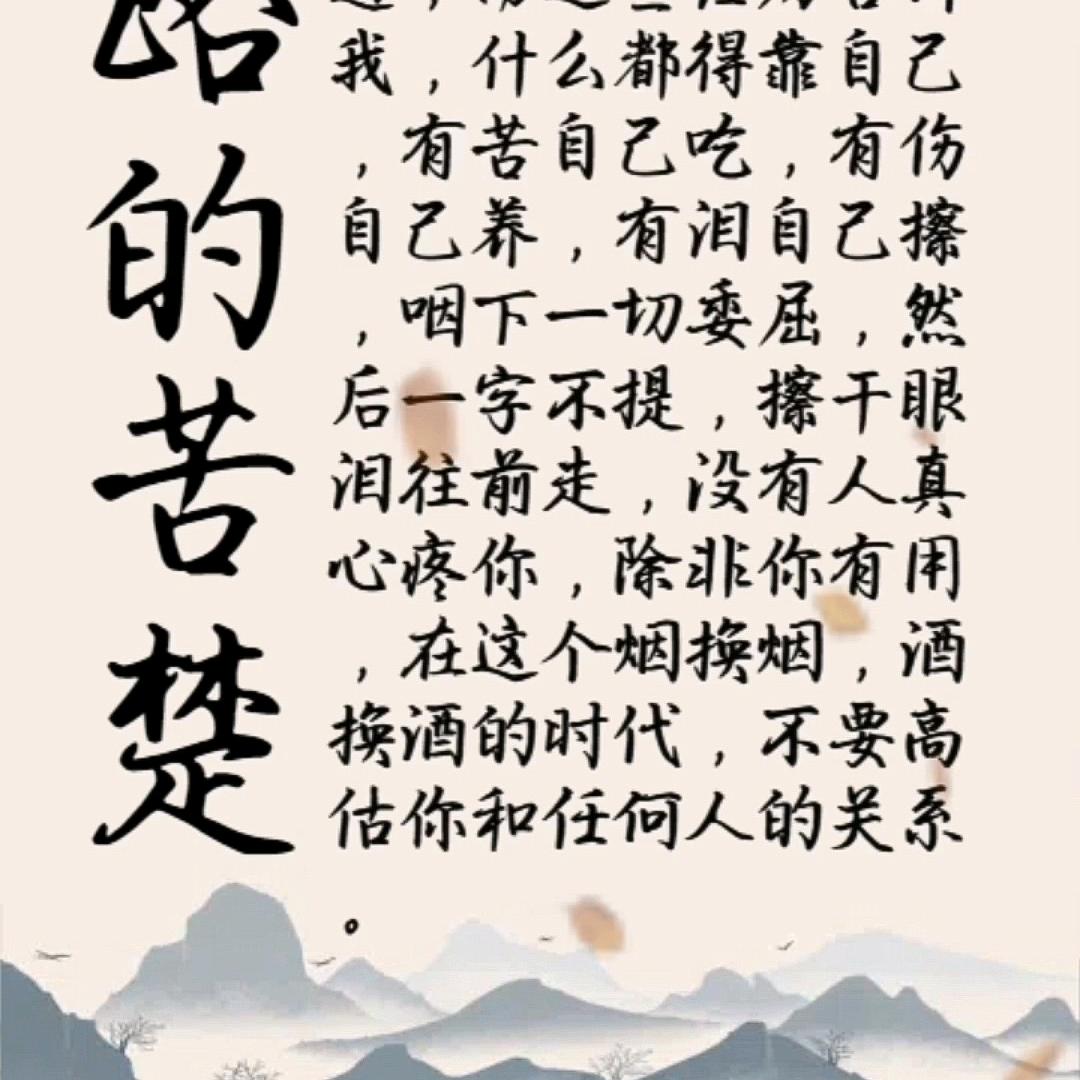 的
苦
楚
我，什么都得靠自己
，有苦自己吃，有伤
自己养，有泪自己擦
，咽下一切委屈，然
后一字不提，擦干眼
泪往前走，没有人真
心疼你，除非你有用
，在这个烟换烟，酒
换酒的时代，不要高
估你和任何人的关系
。